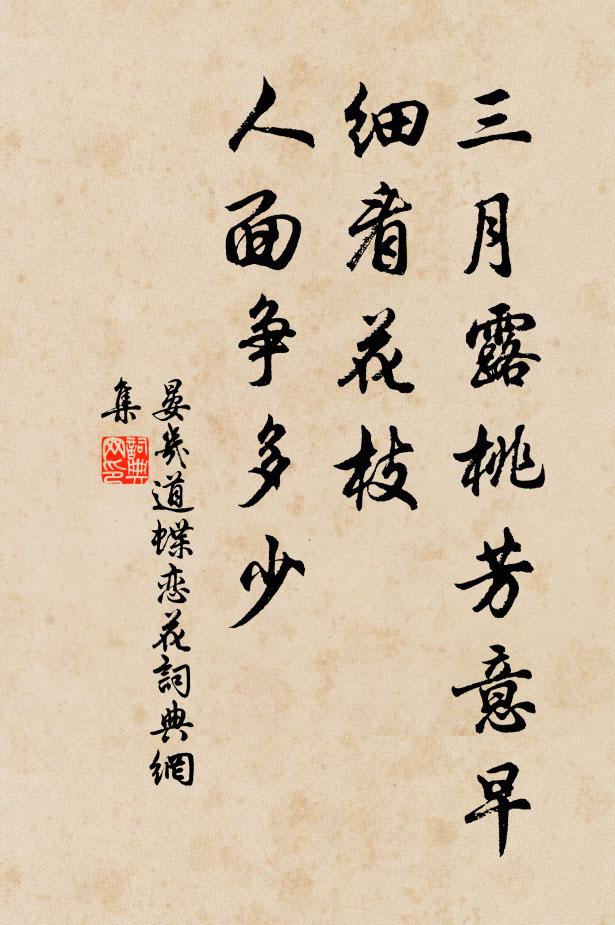 三月露桃芳意早
细看花枝
人面争多少
晏幾道蝶恋花詞典網
集
詞典網印